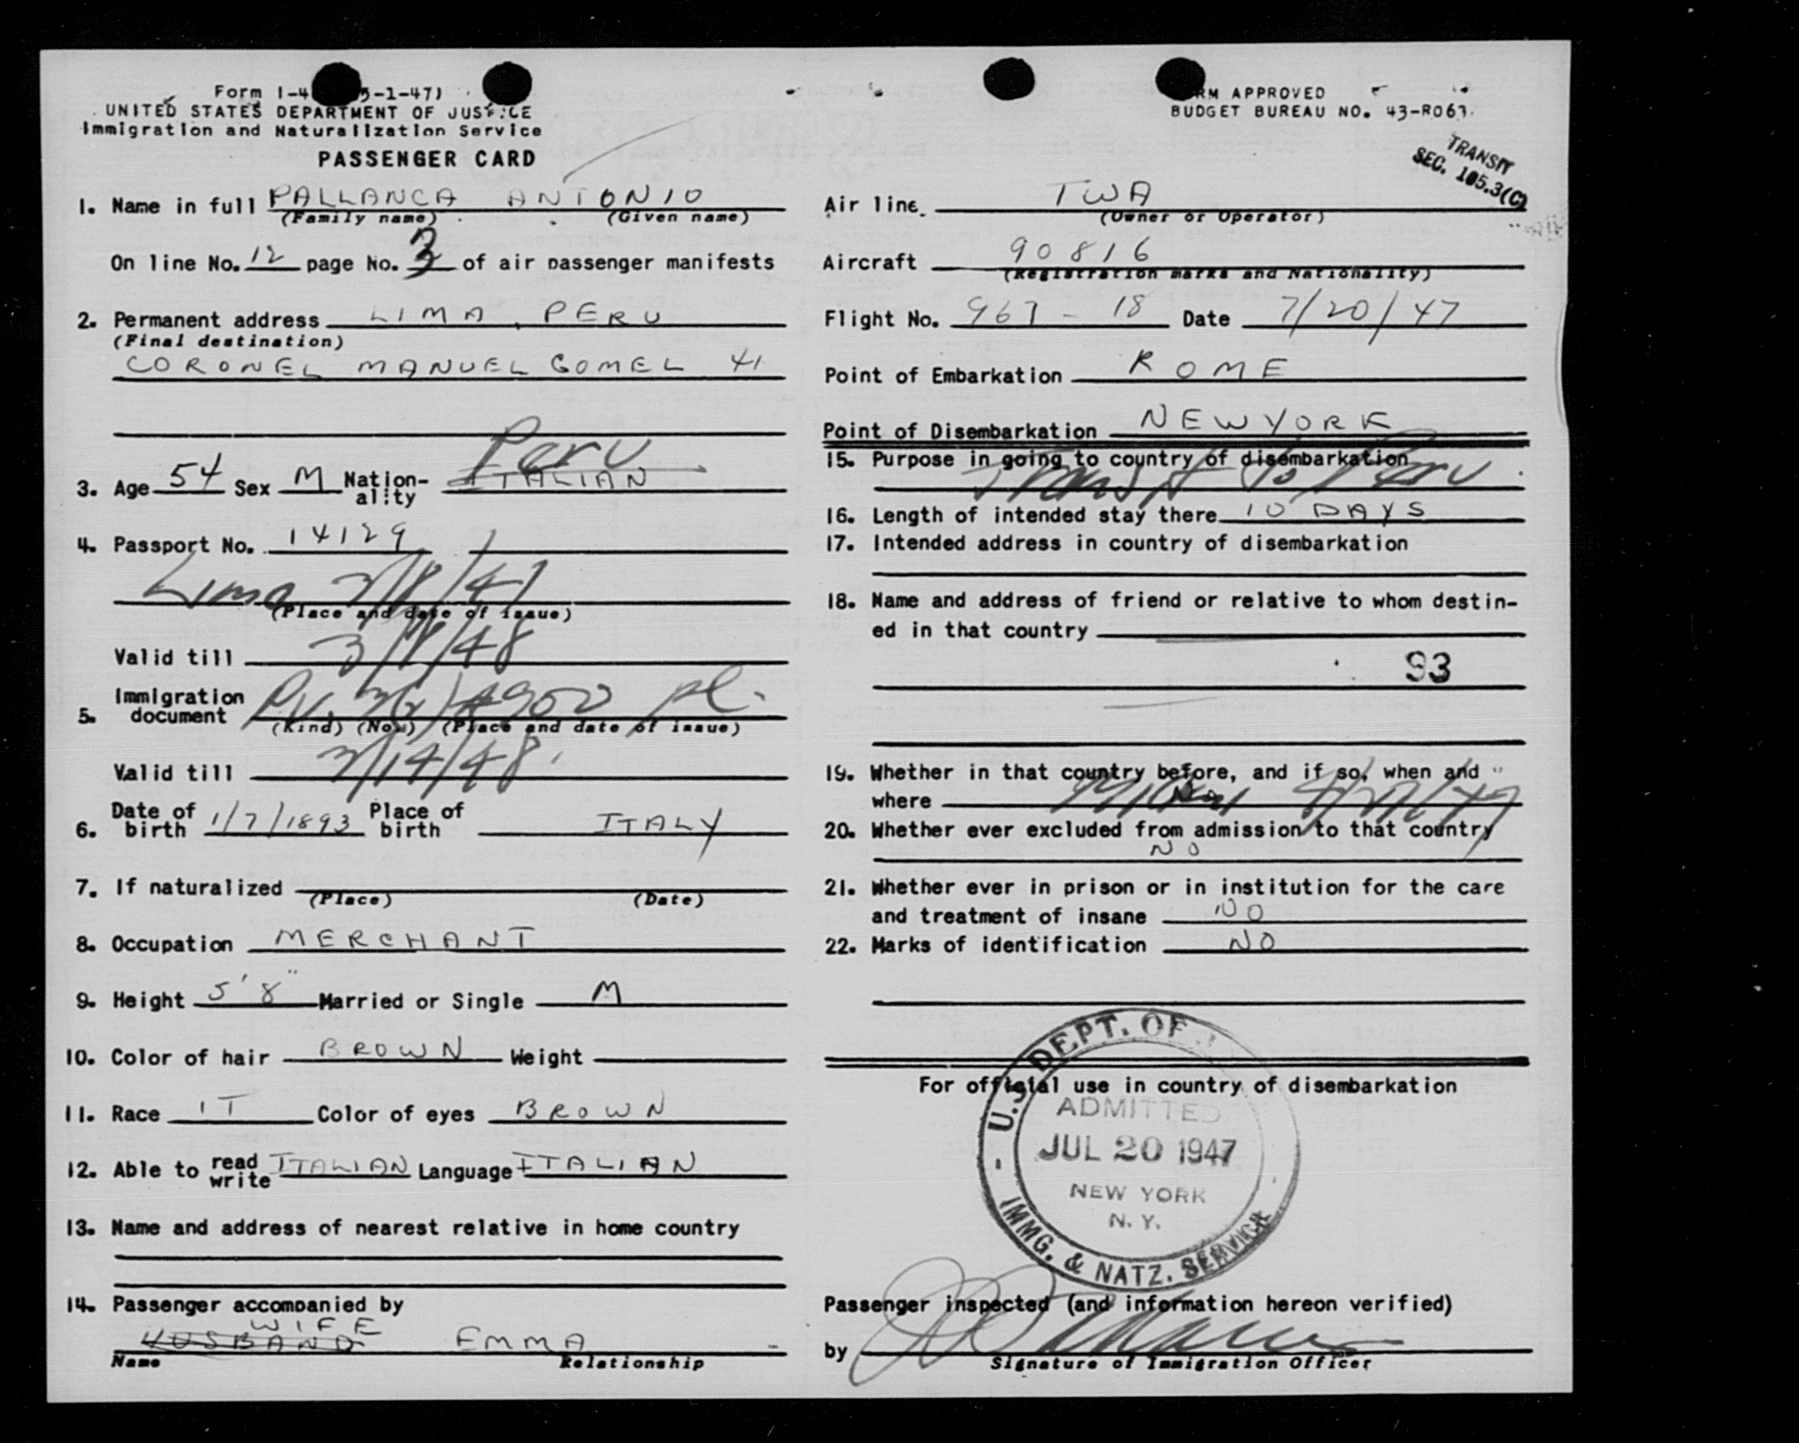 Form I-4 5-1-47)
UNITED STATES DEPARTMENT OF JUSTICE
Immigration and Naturalization Service
PASSENGER CARD
1. Name in full PALLANCA ANTONIO
(Family name) (Given name)
On line No. 12 page No. 3 of air passenger manifests
2. Permanent address LIMA, PERU
(Final destination)
CORONEL MANUEL GOMEL 41
Peru
3. Age 54 Sex M Nation-ality ITALIAN
4. Passport No. 14129
Lima 3/8/47
(Place and date of issue)
Valid till 3/8/48
5. Immigration document
(Kind) (No.) (Place and date of issue)
Valid till 3/14/48.
6. Date of birth 1/7/1893 Place of birth ITALY
7. If naturalized
(Place) (Date)
8. Occupation MERCHANT
9. Height 5'8" Married or Single M
10. Color of hair BROWN Weight
11. Race IT Color of eyes BROWN
12. Able to read write ITALIAN Language ITALIAN
13. Name and address of nearest relative in home country
14. Passenger accompanied by
WIFE
HUSBAND EMMA
Name Relationship
RM APPROVED
BUDGET BUREAU NO. 43-R063.
TRANSIT
SEC. 105.3(C)
Air line TWA
(Owner or Operator)
Aircraft 90816
(Registration marks and Nationality)
Flight No. 967 - 18 Date 7/20/47
Point of Embarkation ROME
Point of Disembarkation NEW YORK
15. Purpose in going to country of disembarkation
Transit to Peru
16. Length of intended stay there 10 DAYS
17. Intended address in country of disembarkation
18. Name and address of friend or relative to whom destin-
ed in that country
93
19. Whether in that country before, and if so, when and
where
20. Whether ever excluded from admission to that country
NO
21. Whether ever in prison or in institution for the care
and treatment of insane NO
22. Marks of identification NO
For official use in country of disembarkation
U.S. DEPT. OF J
ADMITTED
JUL 20 1947
NEW YORK
N. Y.
IMMG. & NATZ. SERVICE
Passenger inspected (and information hereon verified)
by
Signature of Immigration Officer